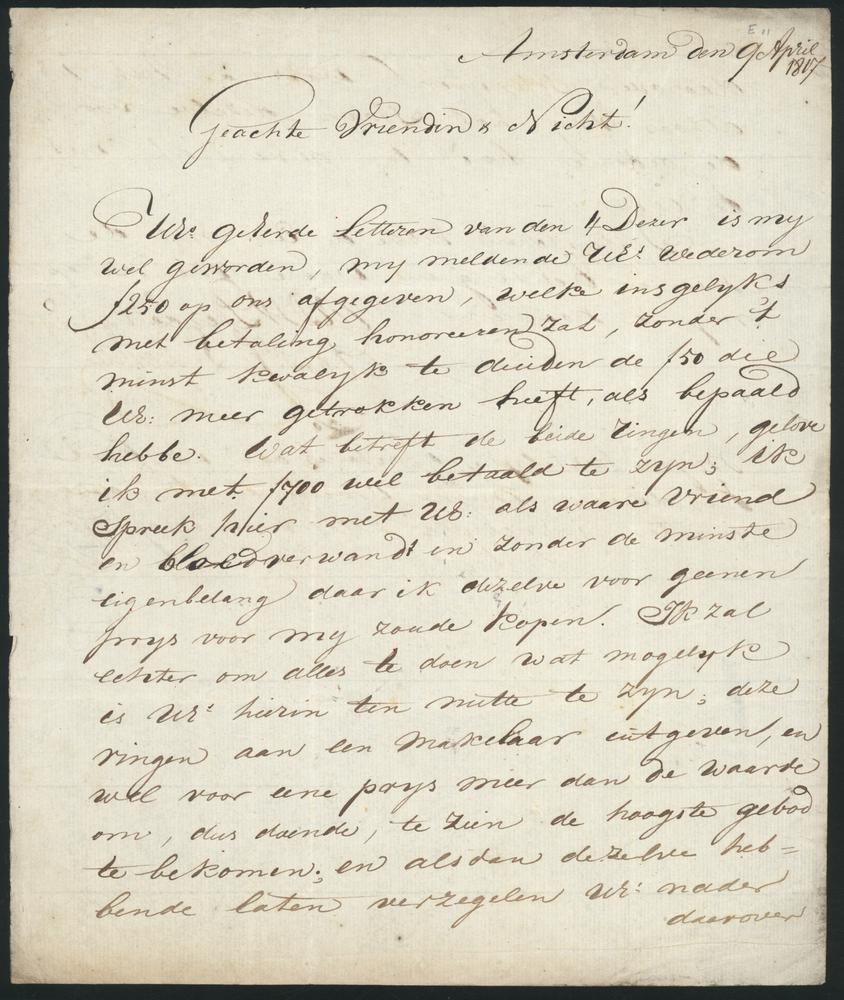 E 11
Amsterdam den 9 April
1817
Geachte Vriendin & Nicht!
UEs geëerde Letteren van den 4 Dezer is my
wel geworden, my meldende UEs wederom
ƒ250 op ons afgegeven, welke insgelyks
met betaling honoreeren zal, zonder 't
minst kwalyk te duiden de ƒ50 die
UE: meer getrokken heeft, als bepaald
hebbe. Wat betreft de beide ringen, gelove
ik met ƒ700 wel betaald te zyn; ik
Spreek hier met UE: als waare vriend
en bloedverwandt en zonder de minste
eigenbelang daar ik dezelve voor geenen
prys voor my zoude kopen. Ik zal
echter om alles te doen wat mogelyk
is UEs hierin ten nutte te zyn; deze
ringen aan een Makelaar uitgeven, en
wel voor eene prys meer dan de waarde
om, dus doende, te zien de hoogste gebod
te bekomen; en alsdan dezelve heb=
bende laten verzegelen UE: nader
daarover